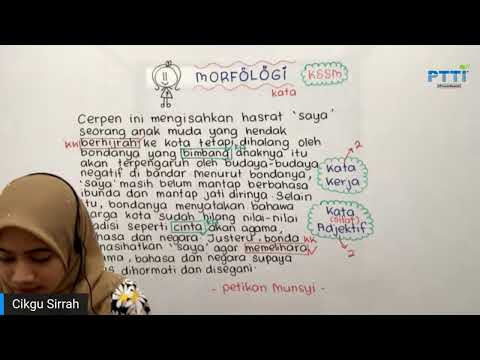 MORFOLOGI
KSSM
PTTI
kata
Cerpen ini mengisahkan hasrat 'saya'
seorang anak muda yang hendak
KK berhijrah ke kota tetapi dihalang oleh
bondanya yang bimbang anaknya itu
akan terpengaruh oleh budaya-budaya
negatif di bandar menurut bondanya,
'saya' masih belum mantap berbahasa
ibunda dan mantap jati dirinya. Selain
itu, bondanya menyatakan bahawa
warga kota sudah hilang nilai-nilai
adisi seperti cinta akan agama,
hasa dan negara. Justeru, bonda KK
nasihatkan 'saya' agar memelihara
ama, bahasa dan negara supaya
s dihormati dan disegani.
2
Kata
Kerja
Kata
(sifat)
Adjektif
2
- petikan Munsyi -
Cikgu Sirrah